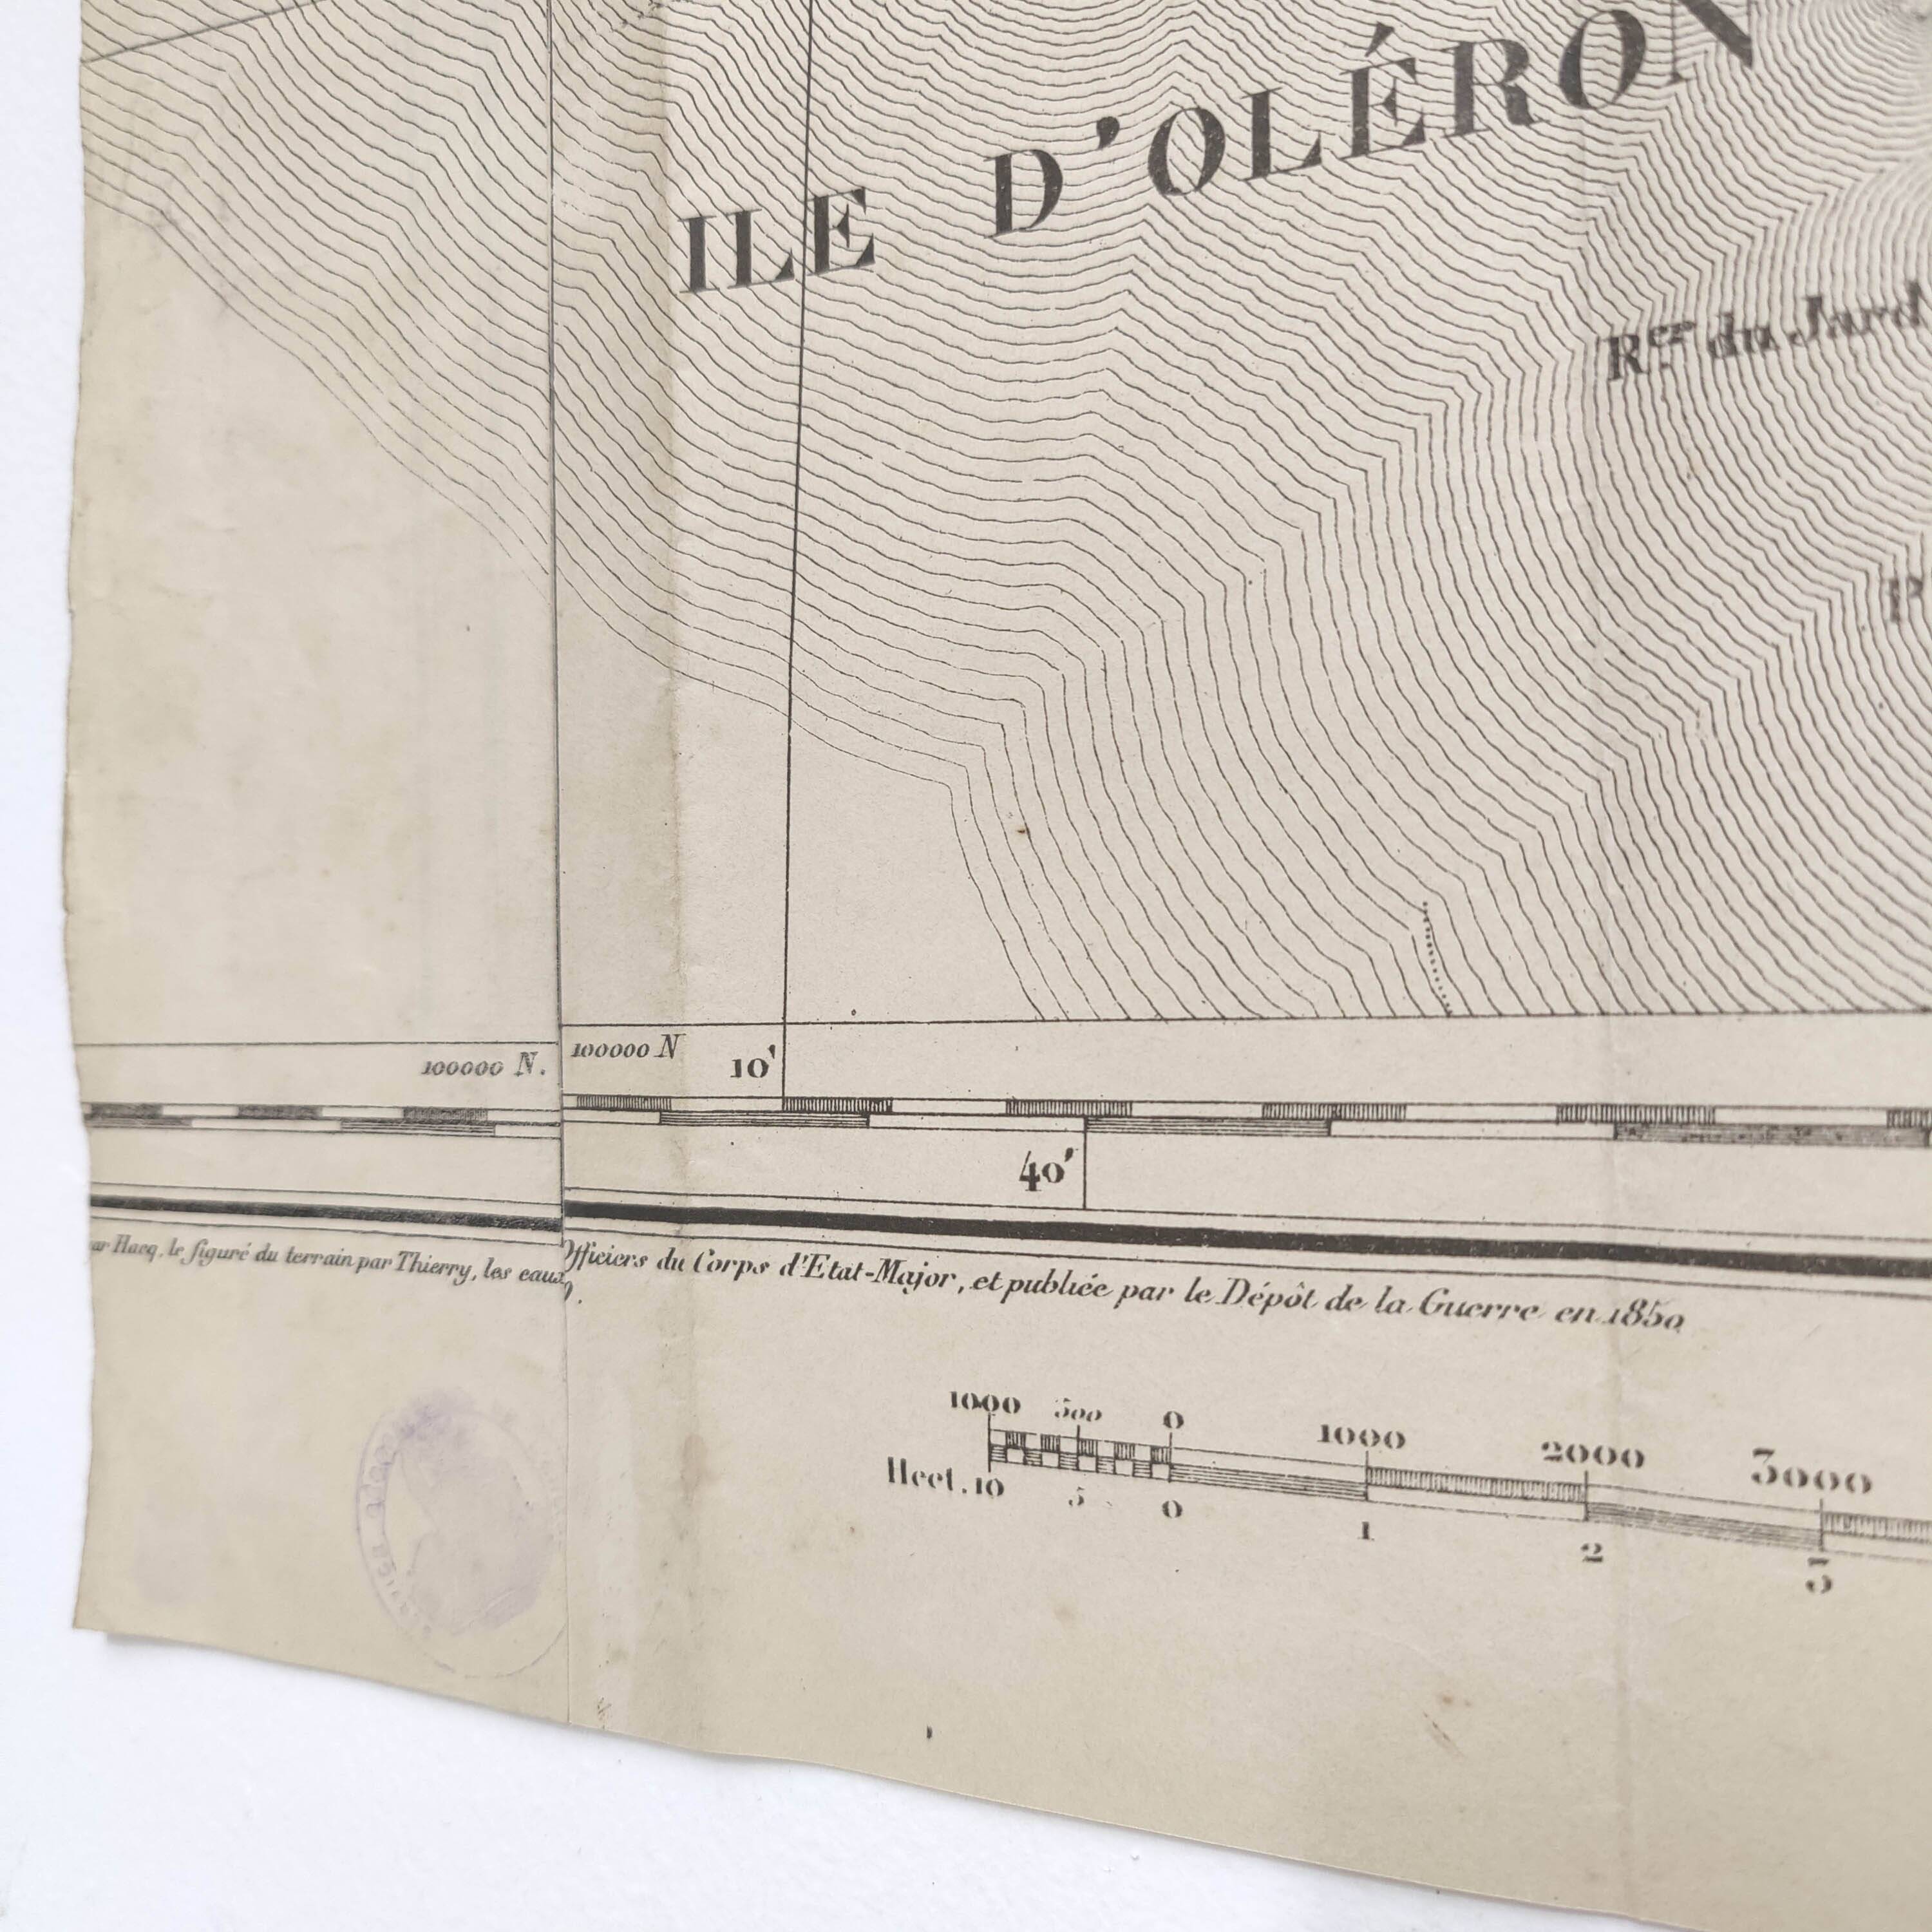 ILE D'OLÉRON
Rer du Jard
100000 N.
100000 N
10'
40'
Hacq, le figuré du terrain par Thierry, les eaux
Officiers du Corps d'Etat-Major, et publiée par le Dépôt de la Guerre en 1850
1000 500 0 1000 2000 3000
Hect. 10 5 0 1 2 3